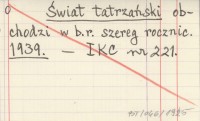 Świat tatrzański ob-
chodzi w b.r. szereg rocznic.
1939. — IKC nr 221.